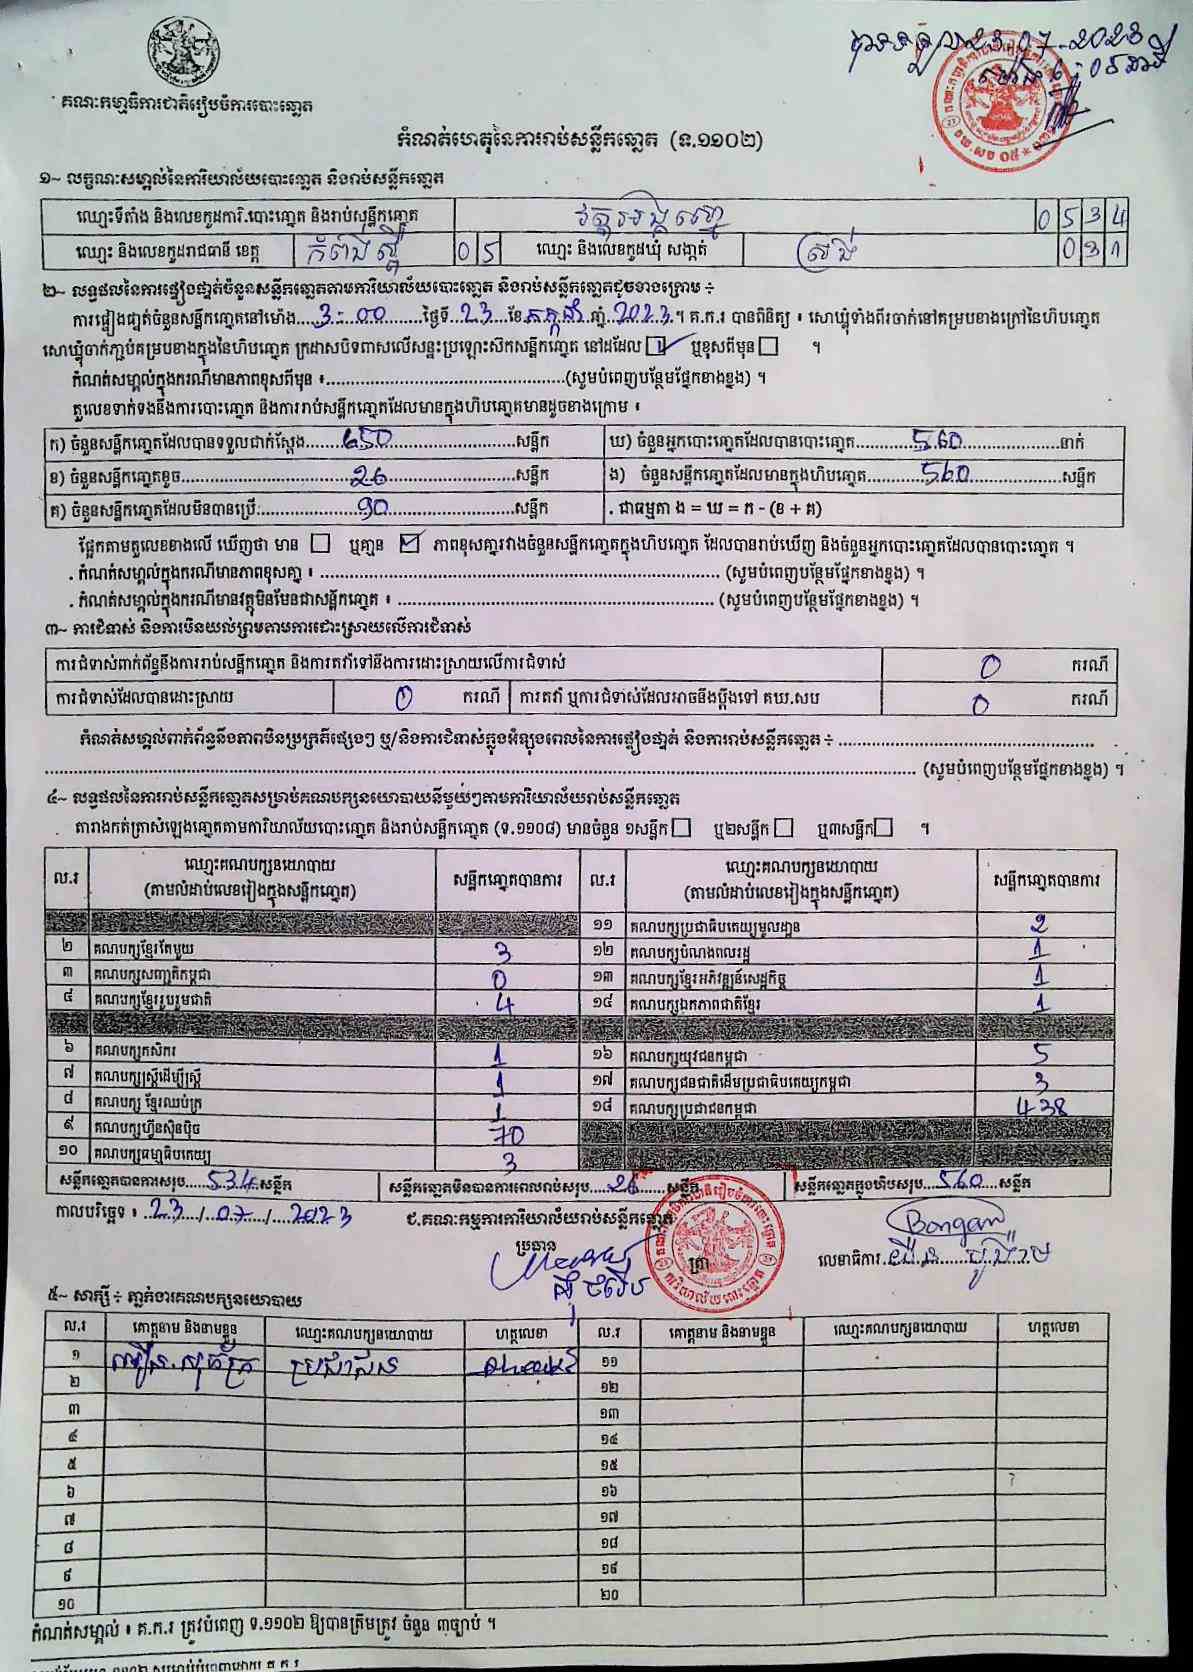 បានទទួល 23.07.2023
គណៈកម្មាធិការជាតិរៀបចំការបោះឆ្នោត
កំណត់ហេតុនៃការរាប់សន្លឹកឆ្នោត (ទ.១១០២)
១~ លក្ខណៈសម្គាល់នៃការិយាល័យបោះឆ្នោត និងរាប់សន្លឹកឆ្នោត
ឈ្មោះទីតាំង និងលេខកូដការិ.បោះឆ្នោត និងរាប់សន្លឹកឆ្នោត 0534
ឈ្មោះ និងលេខកូដរាជធានី ខេត្ត កំពង់ស្ពឺ 05 ឈ្មោះ និងលេខកូដឃុំ សង្កាត់ ស្រង់ 031
២~ លទ្ធផលនៃការផ្ទៀងផ្ទាត់ចំនួនសន្លឹកឆ្នោតតាមការិយាល័យបោះឆ្នោត និងរាប់សន្លឹកឆ្នោតដូចខាងក្រោម ÷
ការផ្ទៀងផ្ទាត់ចំនួនសន្លឹកឆ្នោតនៅម៉ោង 3-00 ថ្ងៃទី 23 ខែ កក្កដា ឆ្នាំ 2023 ។ គ.ក.រ បានពិនិត្យ ៖ សោឃ្លុំទាំងពីរចាក់នៅគម្របខាងក្រៅនៃហិបឆ្នោត
សោឃ្លុំចាក់ភ្ជាប់គម្របខាងក្នុងនៃហិបឆ្នោត ក្រដាសបិទពាសលើសន្ទះប្រឡោះស៊កសន្លឹកឆ្នោត នៅដដែល ☑ ឬខុសពីមុន ☐ ។
កំណត់សម្គាល់ក្នុងករណីមានភាពខុសពីមុន ៖ (សូមបំពេញបន្ថែមផ្នែកខាងខ្នង) ។
តួលេខទាក់ទងនឹងការបោះឆ្នោត និងការរាប់សន្លឹកឆ្នោតដែលមានក្នុងហិបឆ្នោតមានដូចខាងក្រោម ៖
ក) ចំនួនសន្លឹកឆ្នោតដែលបានទទួលជាក់ស្តែង 650 សន្លឹក ឃ) ចំនួនអ្នកបោះឆ្នោតដែលបានបោះឆ្នោត 560 នាក់
ខ) ចំនួនសន្លឹកឆ្នោតខូច 26 សន្លឹក ង) ចំនួនសន្លឹកឆ្នោតដែលមានក្នុងហិបឆ្នោត 560 សន្លឹក
គ) ចំនួនសន្លឹកឆ្នោតដែលមិនបានប្រើ 90 សន្លឹក . ជាធម្មតា ង = ឃ = ក - (ខ + គ)
ផ្អែកតាមតួលេខខាងលើ ឃើញថា មាន ☐ ឬគ្មាន ☑ ភាពខុសគ្នារវាងចំនួនសន្លឹកឆ្នោតក្នុងហិបឆ្នោត ដែលបានរាប់ឃើញ និងចំនួនអ្នកបោះឆ្នោតដែលបានបោះឆ្នោត ។
. កំណត់សម្គាល់ក្នុងករណីមានភាពខុសគ្នា ៖ (សូមបំពេញបន្ថែមផ្នែកខាងខ្នង) ។
. កំណត់សម្គាល់ក្នុងករណីមានវត្ថុមិនមែនជាសន្លឹកឆ្នោត ៖ (សូមបំពេញបន្ថែមផ្នែកខាងខ្នង) ។
៣~ ការជំទាស់ និងការមិនយល់ព្រមតាមការដោះស្រាយលើការជំទាស់
ការជំទាស់ពាក់ព័ន្ធនឹងការរាប់សន្លឹកឆ្នោត និងការតវ៉ាទៅនឹងការដោះស្រាយលើការជំទាស់ 0 ករណី
ការជំទាស់ដែលបានដោះស្រាយ 0 ករណី ការតវ៉ា ឬការជំទាស់ដែលអាចនឹងប្តឹងទៅ គឃ.សប 0 ករណី
កំណត់សម្គាល់ពាក់ព័ន្ធនឹងភាពមិនប្រក្រតីផ្សេងៗ ឬ/និងការជំទាស់ក្នុងអំឡុងពេលនៃការផ្ទៀងផ្ទាត់ និងការរាប់សន្លឹកឆ្នោត ÷
(សូមបំពេញបន្ថែមផ្នែកខាងខ្នង) ។
៤~ លទ្ធផលនៃការរាប់សន្លឹកឆ្នោតសម្រាប់គណបក្សនយោបាយនីមួយៗតាមការិយាល័យរាប់សន្លឹកឆ្នោត
តារាងកត់ត្រាសំឡេងឆ្នោតតាមការិយាល័យបោះឆ្នោត និងរាប់សន្លឹកឆ្នោត (ទ.១១០៨) មានចំនួន ១សន្លឹក ☐ ឬ២សន្លឹក ☐ ឬ៣សន្លឹក ☐ ។
ល.រ ឈ្មោះគណបក្សនយោបាយ (តាមលំដាប់លេខរៀងក្នុងសន្លឹកឆ្នោត) សន្លឹកឆ្នោតបានការ ល.រ ឈ្មោះគណបក្សនយោបាយ (តាមលំដាប់លេខរៀងក្នុងសន្លឹកឆ្នោត) សន្លឹកឆ្នោតបានការ
១១ គណបក្សប្រជាធិបតេយ្យមូលដ្ឋាន 2
២ គណបក្សខ្មែរតែមួយ 3 ១២ គណបក្សបំណងពលរដ្ឋ 1
៣ គណបក្សសញ្ជាតិកម្ពុជា 0 ១៣ គណបក្សខ្មែរអភិវឌ្ឍន៍សេដ្ឋកិច្ច 1
៤ គណបក្សខ្មែររួបរួមជាតិ 4 ១៤ គណបក្សឯកភាពជាតិខ្មែរ 1
៦ គណបក្សកសិករ 1 ១៦ គណបក្សយុវជនកម្ពុជា 5
៧ គណបក្សស្ត្រីដើម្បីស្ត្រី 1 ១៧ គណបក្សជនជាតិដើមប្រជាធិបតេយ្យកម្ពុជា 3
៨ គណបក្ស ខ្មែរឈប់ក្រ 1 ១៨ គណបក្សប្រជាជនកម្ពុជា 438
៩ គណបក្សហ្វ៊ុនស៊ិនប៉ិច 70
១០ គណបក្សធម្មាធិបតេយ្យ 3
សន្លឹកឆ្នោតបានការសរុប 534 សន្លឹក សន្លឹកឆ្នោតមិនបានការពេលរាប់សរុប 26 សន្លឹក សន្លឹកឆ្នោតក្នុងហិបសរុប 560 សន្លឹក
កាលបរិច្ឆេទ ៖ 23/07/2023 ជ.គណៈកម្មការការិយាល័យរាប់សន្លឹកឆ្នោត
ប្រធាន ត្រា លេខាធិការ
៥~ សាក្សី ÷ ភ្នាក់ងារគណបក្សនយោបាយ
ល.រ គោត្តនាម និងនាមខ្លួន ឈ្មោះគណបក្សនយោបាយ ហត្ថលេខា ល.រ គោត្តនាម និងនាមខ្លួន ឈ្មោះគណបក្សនយោបាយ ហត្ថលេខា
១ ប្រជាជន ១១
២ ១២
៣ ១៣
៤ ១៤
៥ ១៥
៦ ១៦
៧ ១៧
៨ ១៨
៩ ១៩
១០ ២០
កំណត់សម្គាល់ ៖ គ.ក.រ ត្រូវបំពេញ ទ.១១០២ ឱ្យបានត្រឹមត្រូវ ចំនួន ៣ច្បាប់ ។